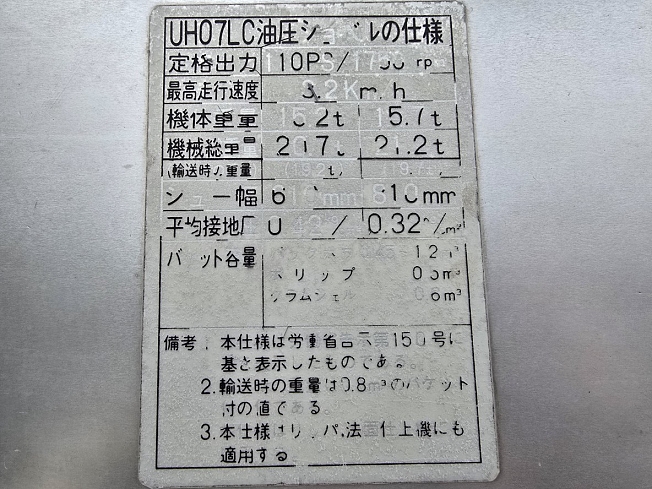 UH07LC油圧ショベルの仕様
定格出力 110PS/1700rpm
最高走行速度 3.2Km/h
機体重量 15.2t 15.7t
機械総重量 20.7t 21.2t
(輸送時の重量 (19.2t)
シュー幅 610mm 810mm
平均接地圧 0.42 0.32
バケット容量
ドリップ
クラムシェル 0.6m³
備考 1. 本仕様は労働省告示第150号に
基き表示したものである。
2. 輸送時の重量は0.8m³のバケット
付の値である。
3. 本仕様はリッパ,法面仕上機にも
適用する。